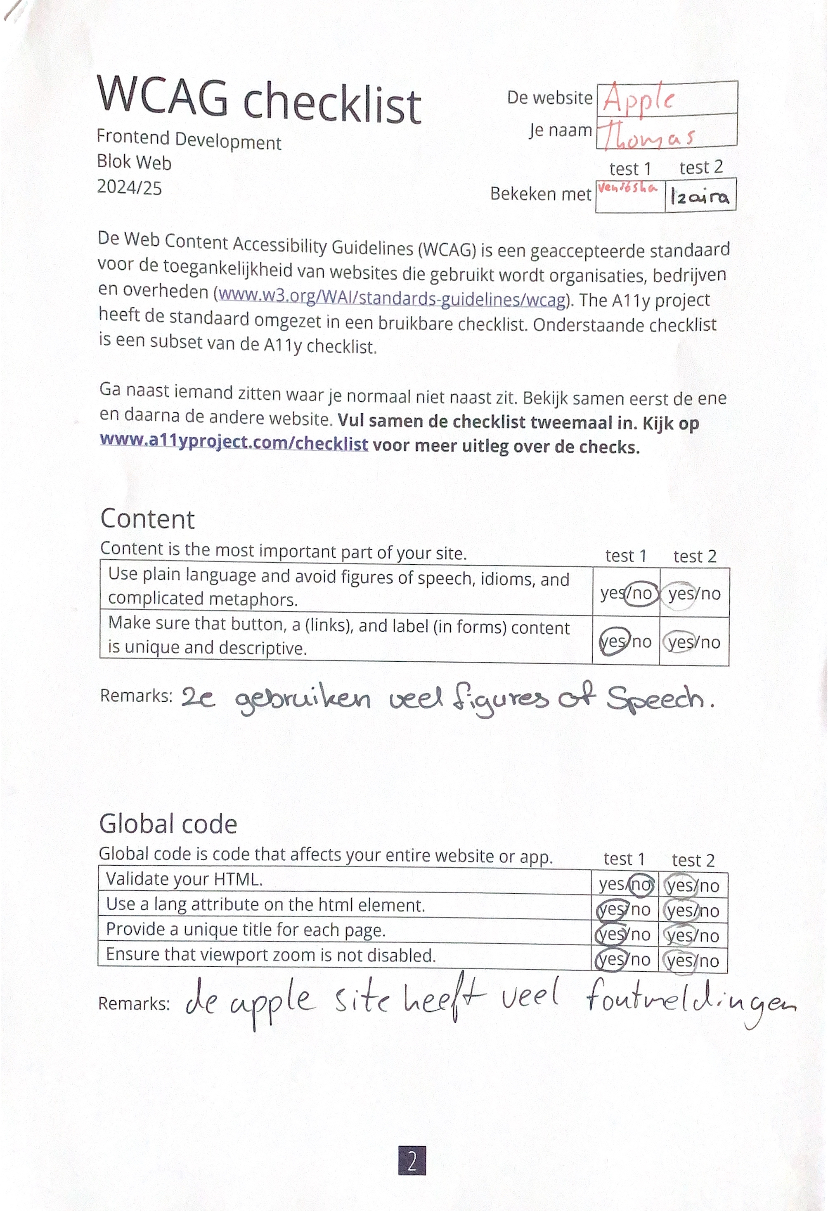 WCAG checklist
Frontend Development
Blok Web
2024/25
De website Apple
Je naam Thomas
test 1 test 2
Bekeken met Izaira
De Web Content Accessibility Guidelines (WCAG) is een geaccepteerde standaard
voor de toegankelijkheid van websites die gebruikt wordt organisaties, bedrijven
en overheden (www.w3.org/WAI/standards-guidelines/wcag). The A11y project
heeft de standaard omgezet in een bruikbare checklist. Onderstaande checklist
is een subset van de A11y checklist.
Ga naast iemand zitten waar je normaal niet naast zit. Bekijk samen eerst de ene
en daarna de andere website. Vul samen de checklist tweemaal in. Kijk op
www.a11yproject.com/checklist voor meer uitleg over de checks.
Content
Content is the most important part of your site. test 1 test 2
Use plain language and avoid figures of speech, idioms, and
complicated metaphors. yes/no yes/no
Make sure that button, a (links), and label (in forms) content
is unique and descriptive. yes/no yes/no
Remarks: 2e gebruiken veel figures of Speech.
Global code
Global code is code that affects your entire website or app. test 1 test 2
Validate your HTML. yes/no yes/no
Use a lang attribute on the html element. yes/no yes/no
Provide a unique title for each page. yes/no yes/no
Ensure that viewport zoom is not disabled. yes/no yes/no
Remarks: de apple site heeft veel foutmeldingen
2